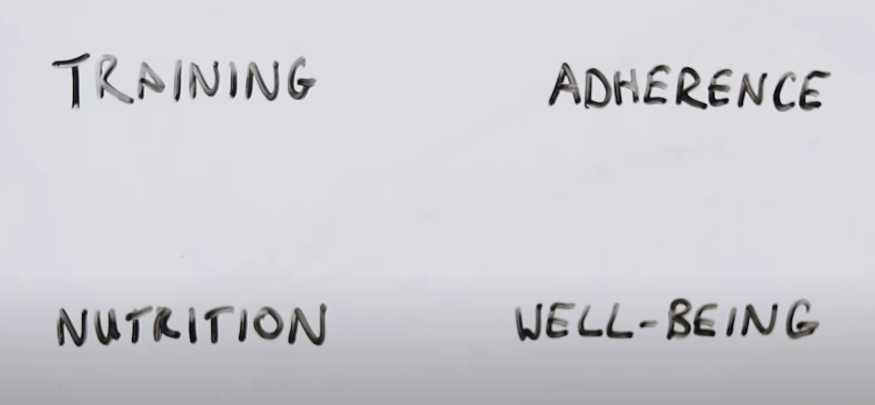 TRAINING ADHERENCE
NUTRITION WELL-BEING